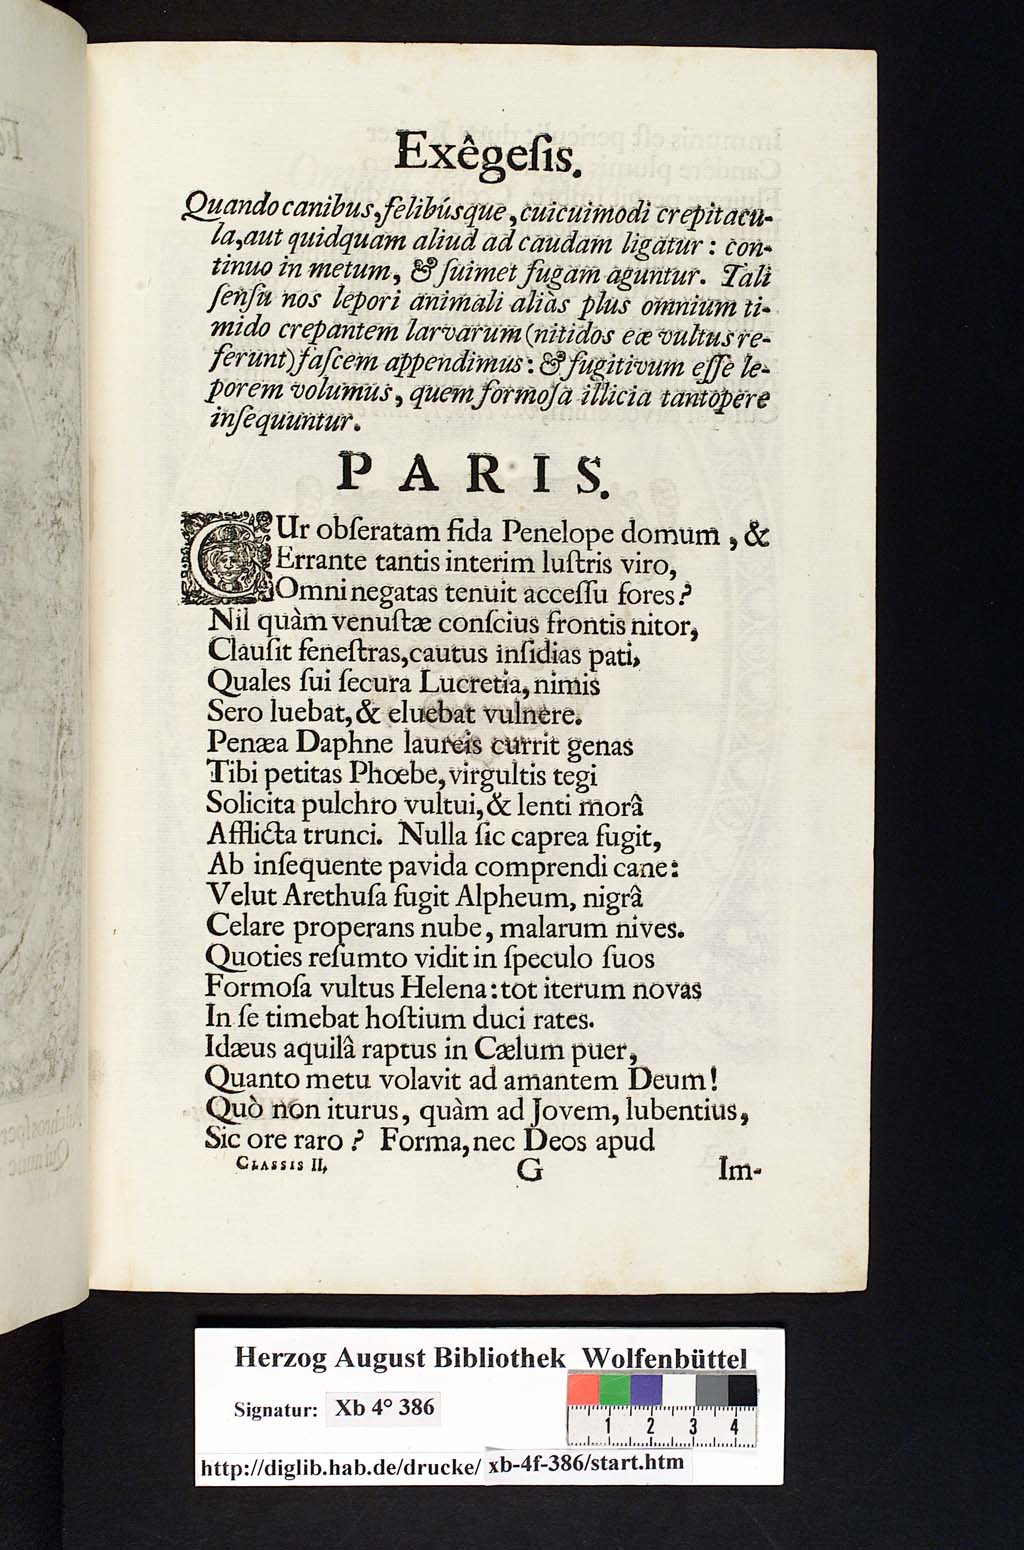 Exêgeſis.
Quando canibus, felibúsque, cuicuimodi crepitacu-
la, aut quidquam aliud ad caudam ligatur: con-
tinuo in metum, & ſuimet fugam aguntur. Tali
ſenſu nos lepori animali aliàs plus omnium ti-
mido crepantem larvarum (nitidos eæ vultus re-
ferunt) faſcem appendimus: & fugitivum eſſe le-
porem volumus, quem formoſa illicia tantopere
inſequuntur.
PARIS.
CUr obſeratam fida Penelope domum, &
Errante tantis interim luſtris viro,
Omni negatas tenuit acceſſu fores?
Nil quàm venuſtæ conſcius frontis nitor,
Clauſit feneſtras, cautus inſidias pati,
Quales ſui ſecura Lucretia, nimis
Sero luebat, & eluebat vulnere.
Penæa Daphne laureis currit genas
Tibi petitas Phœbe, virgultis tegi
Solicita pulchro vultui, & lenti morâ
Afflicta trunci. Nulla ſic caprea fugit,
Ab inſequente pavida comprendi cane:
Velut Arethuſa fugit Alpheum, nigrâ
Celare properans nube, malarum nives.
Quoties reſumto vidit in ſpeculo ſuos
Formoſa vultus Helena: tot iterum novas
In ſe timebat hoſtium duci rates.
Idæus aquilâ raptus in Cælum puer,
Quanto metu volavit ad amantem Deum!
Quò non iturus, quàm ad Jovem, lubentius,
Sic ore raro? Forma, nec Deos apud
CLASSIS II, G Im-
Herzog August Bibliothek Wolfenbüttel
Signatur: Xb 4° 386
1 2 3 4
http://diglib.hab.de/drucke/ xb-4f-386/start.htm